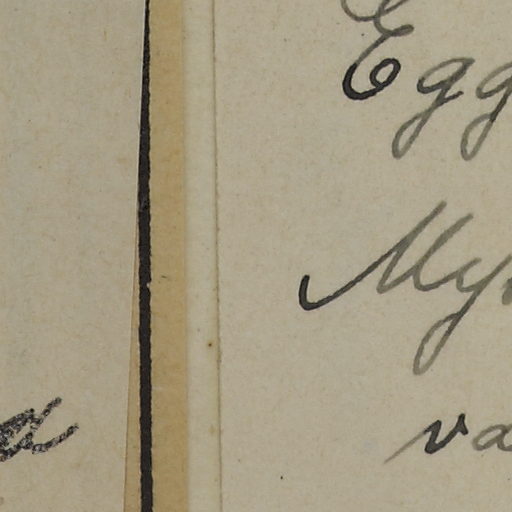 Egg
My
va
a